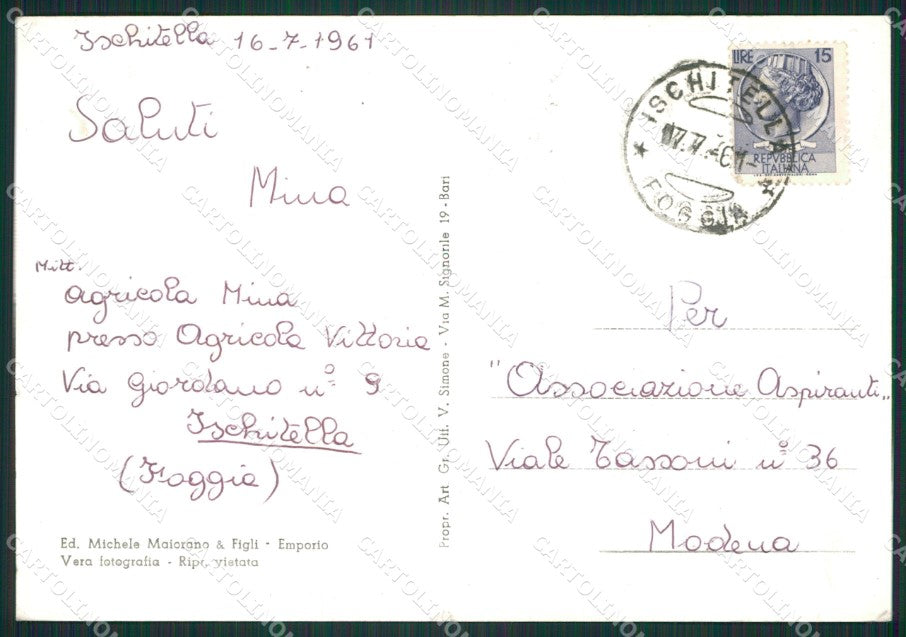 Ischitella 16-7-1961
Saluti
Mina
Mitt.
Agricola Mina
presso Agricola Vittoria
Via Giordano nº 9
Ischitella
(Foggia)
Ed. Michele Maiorano & Figli - Emporio
Vera fotografia - Ripr. vietata
Propr. Art Gr. Uff. V. Simone - Via M. Signorile 19 - Bari
LIRE 15
REPVBBLICA
ITALIANA
ISCHITELLA
FOGGIA
Per
"Associazione Aspiranti"
Viale Tassoni nº 36
Modena
CARTOLINOMANIA